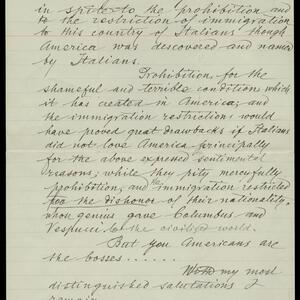 in spite to the prohibition and
to the restriction of immigration
to this country of Italians though
America was descovered and named
by Italians.
Prohibition, for the
shameful and terrible condition which
it has created in America, and
the immigration restrictions would
have proved great drawbacks if Italians
did not love America principally
for the above expressed sentimental
reasons, while they pity mercyfully
prohibition, and the immigration restricted
for the dishonor of their nationality,
whose genius gave Columbus and
Vespucci to the civilised world.
But you Americans are
the bosses......
With my most
distinguished salutations I
remain